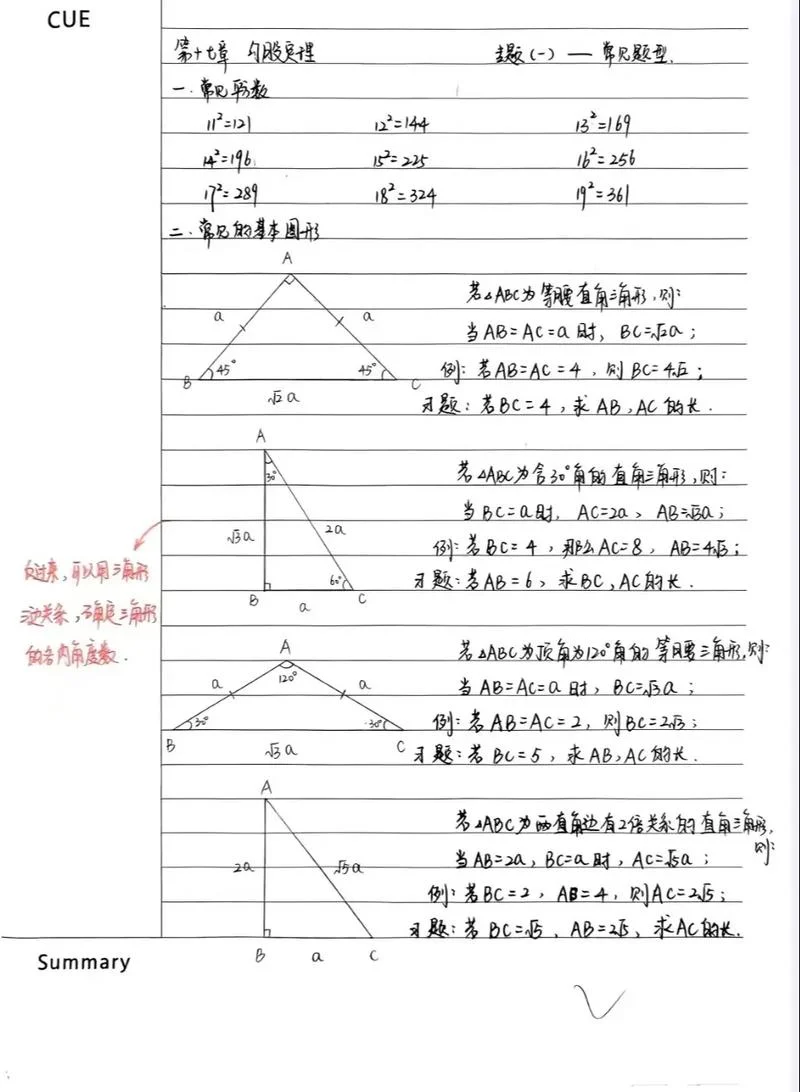 CUE
第十七章 勾股定理 主题(一) — 常见题型.
一.常见平方数
11²=121 12²=144 13²=169
14²=196 15²=225 16²=256
17²=289 18²=324 19²=361
二.常见的基本图形
A
a a
B 45° 45° C
√2a
若△ABC为等腰直角三角形,则:
当AB=AC=a时, BC=√2a;
例:若AB=AC=4,则BC=4√2;
习题:若BC=4,求AB,AC的长.
A
30°
√3a 2a
60°
B a C
若△ABC为含30°角的直角三角形,则:
当BC=a时, AC=2a, AB=√3a;
例:若BC=4,那么AC=8, AB=4√3;
习题:若AB=6,求BC,AC的长.
反过来,可以用三角形
三边关系,确定三角形
的各内角度数.
A
a 120° a
B 30° 30° C
√3a
若△ABC为顶角为120°角的等腰三角形,则:
当AB=AC=a时, BC=√3a;
例:若AB=AC=2,则BC=2√3;
习题:若BC=5,求AB,AC的长.
A
2a √5a
B a C
若△ABC为两直角边有2倍关系的直角三角形,
则:
当AB=2a,BC=a时,AC=√5a;
例:若BC=2, AB=4,则AC=2√5;
习题:若BC=√5, AB=2√5,求AC的长.
Summary